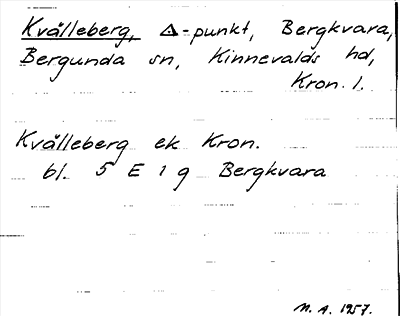 Kvålleberg, △-punkt, Bergkvara,
Bergunda sn, Kinnevalds hd,
Kron. l.
Kvålleberg ek Kron.
bl. 5 E 1 g Bergkvara
M. A. 1957.